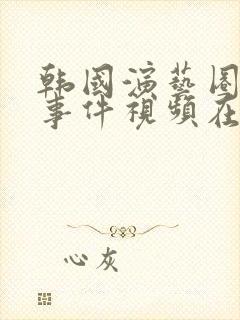 韩國演藝圈
事件視頻在
心灰